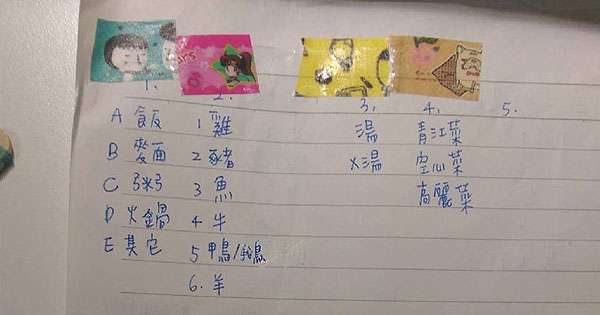 1. 2. 3. 4. 5.
A 飯 1 雞 湯 青江菜
B 麵 2 豬 X湯 空心菜
C 粥 3 魚 高麗菜
D 火鍋 4 牛
E 其它 5 鴨/鵝
6. 羊